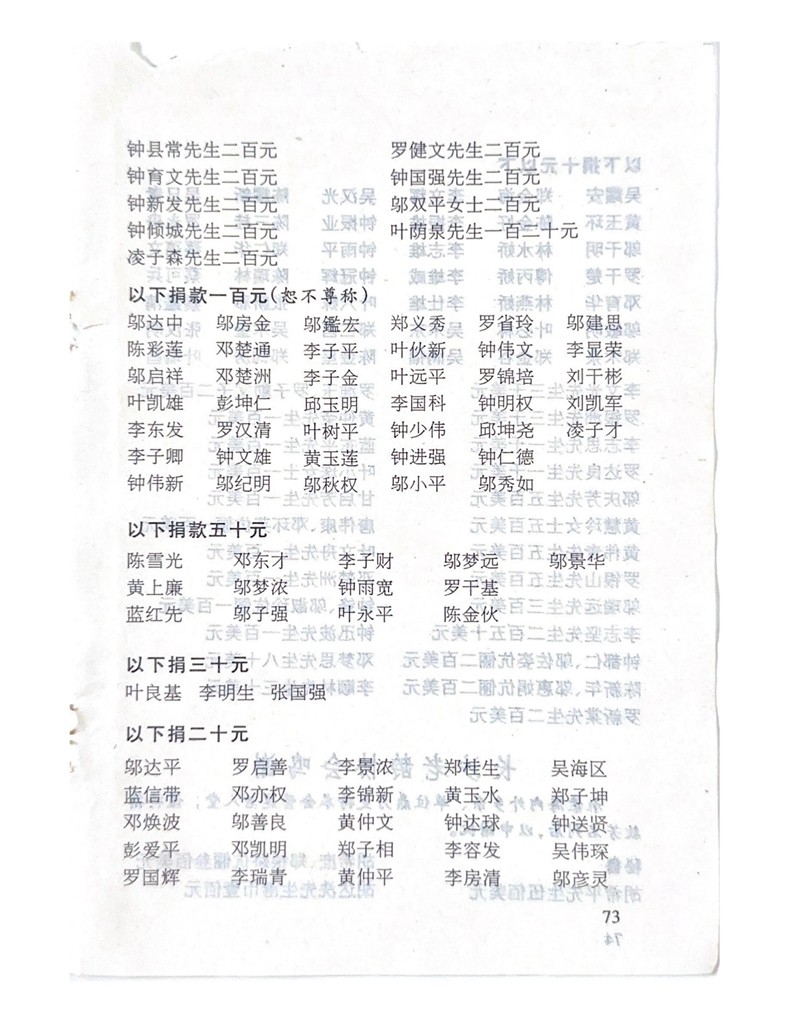 钟县常先生二百元 罗健文先生二百元
钟育文先生二百元 钟国强先生二百元
钟新发先生二百元 邬双平女士二百元
钟倾城先生二百元 叶荫泉先生一百二十元
凌子森先生二百元
以下捐款一百元(恕不尊称)
邬达中 邬房金 邬鑑宏 郑义秀 罗省玲 邬建思
陈彩莲 邓楚通 李子平 叶伙新 钟伟文 李显荣
邬启祥 邓楚洲 李子金 叶远平 罗锦培 刘干彬
叶凯雄 彭坤仁 邱玉明 李国科 钟明权 刘凯军
李东发 罗汉清 叶树平 钟少伟 邱坤尧 凌子才
李子卿 钟文雄 黄玉莲 钟进强 钟仁德
钟伟新 邬纪明 邬秋权 邬小平 邬秀如
以下捐款五十元
陈雪光 邓东才 李子财 邬梦远 邬景华
黄上廉 邬梦浓 钟雨宽 罗干基
蓝红先 邬子强 叶永平 陈金伙
以下捐三十元
叶良基 李明生 张国强
以下捐二十元
邬达平 罗启善 李景浓 郑桂生 吴海区
蓝信带 邓亦权 李锦新 黄玉水 郑子坤
邓焕波 邬善良 黄仲文 钟达球 钟送贤
彭爱平 邓凯明 郑子相 李容发 吴伟琛
罗国辉 李瑞青 黄仲平 李房清 邬彦灵
73